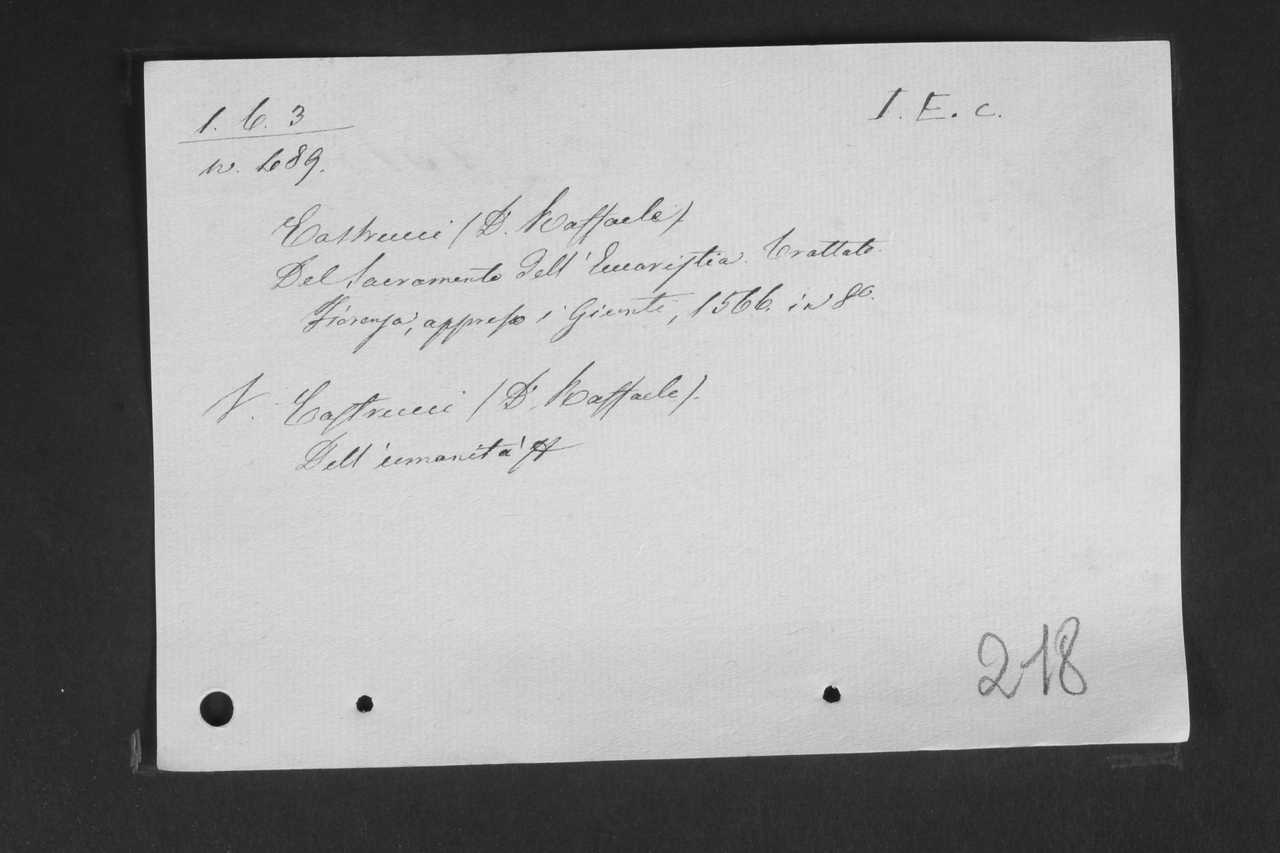 1. 6. 3
I. E. c.
n. 689.
Castrucci (D. Raffaele)
Del Sacramento dell'Eucaristia. Trattato.
Fiorenza, appresso i Giunti, 1566. in 8º.
V. Castrucci (D. Raffaele).
Dell'umanità
218